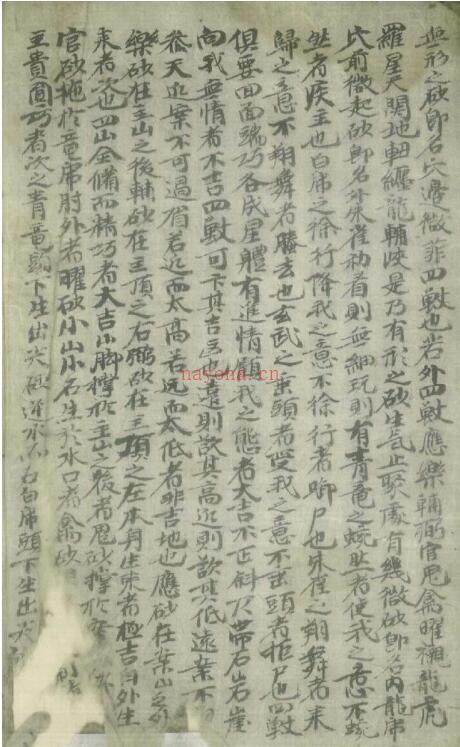 無形之砂卽名穴邊微菲四獸也若外四獸應樂輔弼官鬼禽曜視龍虎
羅星天関地軸纏龍輔峽是乃有形之砂生氣止聚處有幾微砂卽名內龍席
穴前微起砂卽名外朱雀初看則無細玩則有青竜之蜿然者使我之意不蜿
然者疾主也白席之徐行降我之意不徐行者啣尸也朱雀之翔舞者来
歸之意不翔舞者勝去也玄武之垂頭者受我之意不垂頭者拒尸也四獸
俱要回面端巧各成星體有進情顧我之態者大吉不正斜乃帶石山岩崖
向我無情者不吉四獸可卞其吉凶也還則欲其高近則欲其低遠案不
參天近案不可過眉若近而太高若远而太低者非吉地也應砂在案山之外
樂砂在主山之後輔砂在主頂之右弼砂在主頂之左本身生来者極吉自外生
来者次也四山全備而精巧者大吉小脚撑於主山之後者鬼砂撑於
官砂拖於竜席肘外者曜砂小山小石生於水口者禽砂
主貴圓巧者次之青竜頭下生出尖砂逆水 白席頭下生出尖
nayona.cn